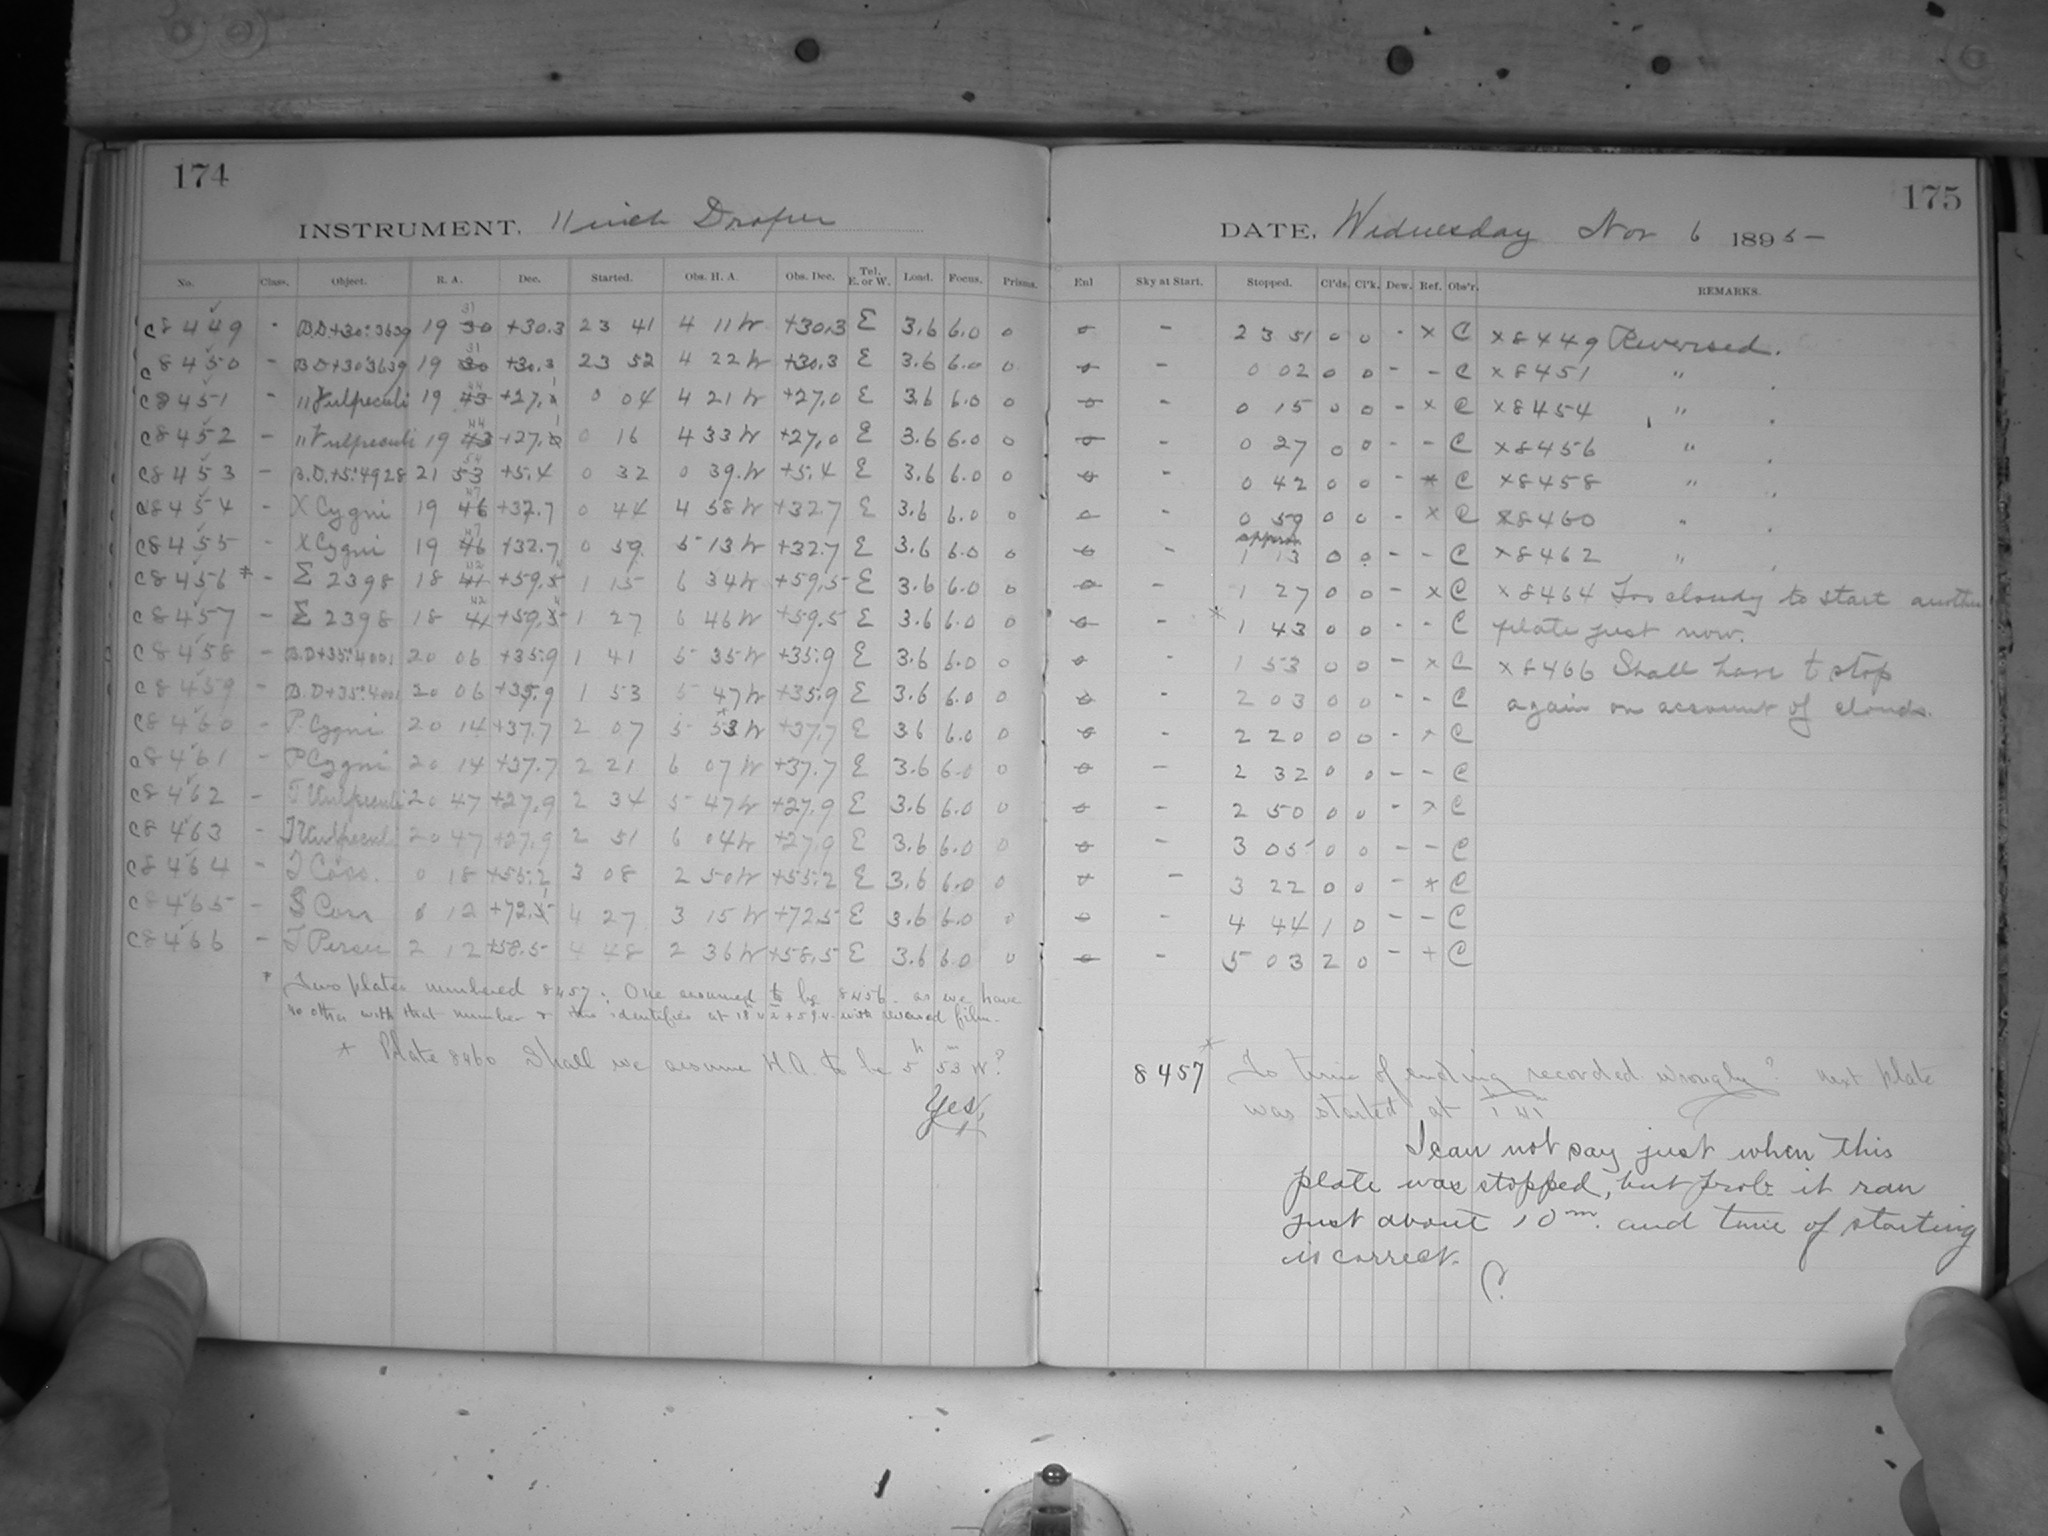 174
INSTRUMENT. 11 inch Draper
No. Class. Object. R. A. Dec. Started. Obs. H. A. Obs. Dec. Tel. E. or W. Load. Focus. Prisms.
C8449 - B.D.+30°3639 19 30 31 +30.3 23 41 4 11 W +30.3 E 3.6 6.0 0
C8450 - B.D+30°3639 19 30 31 +30.3 23 52 4 22 W +30.3 E 3.6 6.0 0
C8451 - 11 Vulpeculi 19 43 44 +27.0 1 0 04 4 21 W +27.0 E 3.6 6.0 0
C8452 - 11 Vulpeculi 19 43 44 +27.0 1 0 16 4 33 W +27.0 E 3.6 6.0 0
C8453 - B.D.+5°4928 21 53 54 +5.4 0 32 0 39 W +5.4 E 3.6 6.0 0
C8454 - X Cygni 19 46 47 +32.7 0 44 4 58 W +32.7 E 3.6 6.0 0
C8455 - X Cygni 19 46 47 +32.7 0 59 5 13 W +32.7 E 3.6 6.0 0
C8456 * - Σ 2398 18 41 42 +59.5 4 1 15 6 34 W +59.5 E 3.6 6.0 0
C8457 - Σ 2398 18 41 42 +59.5 4 1 27 6 46 W +59.5 E 3.6 6.0 0
C8458 - B.D+35°4001 20 06 +35.9 1 41 5 35 W +35.9 E 3.6 6.0 0
C8459 - B.D+35°4001 20 06 +35.9 1 53 5 47 W +35.9 E 3.6 6.0 0
C8460 - P. Cygni 20 14 +37.7 2 07 5 53 * W +37.7 E 3.6 6.0 0
C8461 - P Cygni 20 14 +37.7 2 21 6 07 W +37.7 E 3.6 6.0 0
C8462 - T Vulpeculi 20 47 +27.9 2 34 5 47 W +27.9 E 3.6 6.0 0
C8463 - T Vulpeculi 20 47 +27.9 2 51 6 04 W +27.9 E 3.6 6.0 0
C8464 - T Cass. 0 18 +55.2 3 08 2 50 W +55.2 E 3.6 6.0 0
C8465 - S Cass 0 12 +72.5 4 27 3 15 W +72.5 E 3.6 6.0 0
C8466 - T Persei 2 12 +58.5 4 48 2 36 W +58.5 E 3.6 6.0 0
* Two plates numbered 8457; One assumed to be 8456 as we have
no other with that number & this identifies at 18 42 +59.4 with reversed film.
* Plate 8460 Shall we assume H.A. to be 5h 53m W?
Yes
175
DATE, Wednesday Nov 6 1895
Enl Sky at Start. Stopped. Cl'ds. Cl'k. Dew. Ref. Obs'r. REMARKS.
0 - 23 51 0 0 - x C x8449 Reversed.
0 - 0 02 0 0 - - C x8451 " .
0 - 0 15 0 0 - x C x8454 " .
0 - 0 27 0 0 - - C x8456 " .
0 - 0 42 0 0 - x C x8458 " .
0 - 0 59 0 0 - x C x8460 " .
approx
0 - 1 13 0 0 - - C x8462 " .
0 - 1 27 0 0 - x C x8464 Too cloudy to start another
0 - * 1 43 0 0 - - C plate just now.
0 - 1 53 0 0 - x C x8466 Shall have to stop
0 - 2 03 0 0 - - C again on account of clouds.
0 - 2 20 0 0 - x C
0 - 2 32 0 0 - - C
0 - 2 50 0 0 - x C
0 - 3 05 0 0 - - C
0 - 3 22 0 0 - x C
0 - 4 44 1 0 - - C
0 - 5 03 2 0 - + C
8457 * Is time of ending recorded wrongly? next plate
was started at 1h 41m
I can not say just when this
plate was stopped, but prob. it ran
just about 10m. and time of starting
is correct.
C.